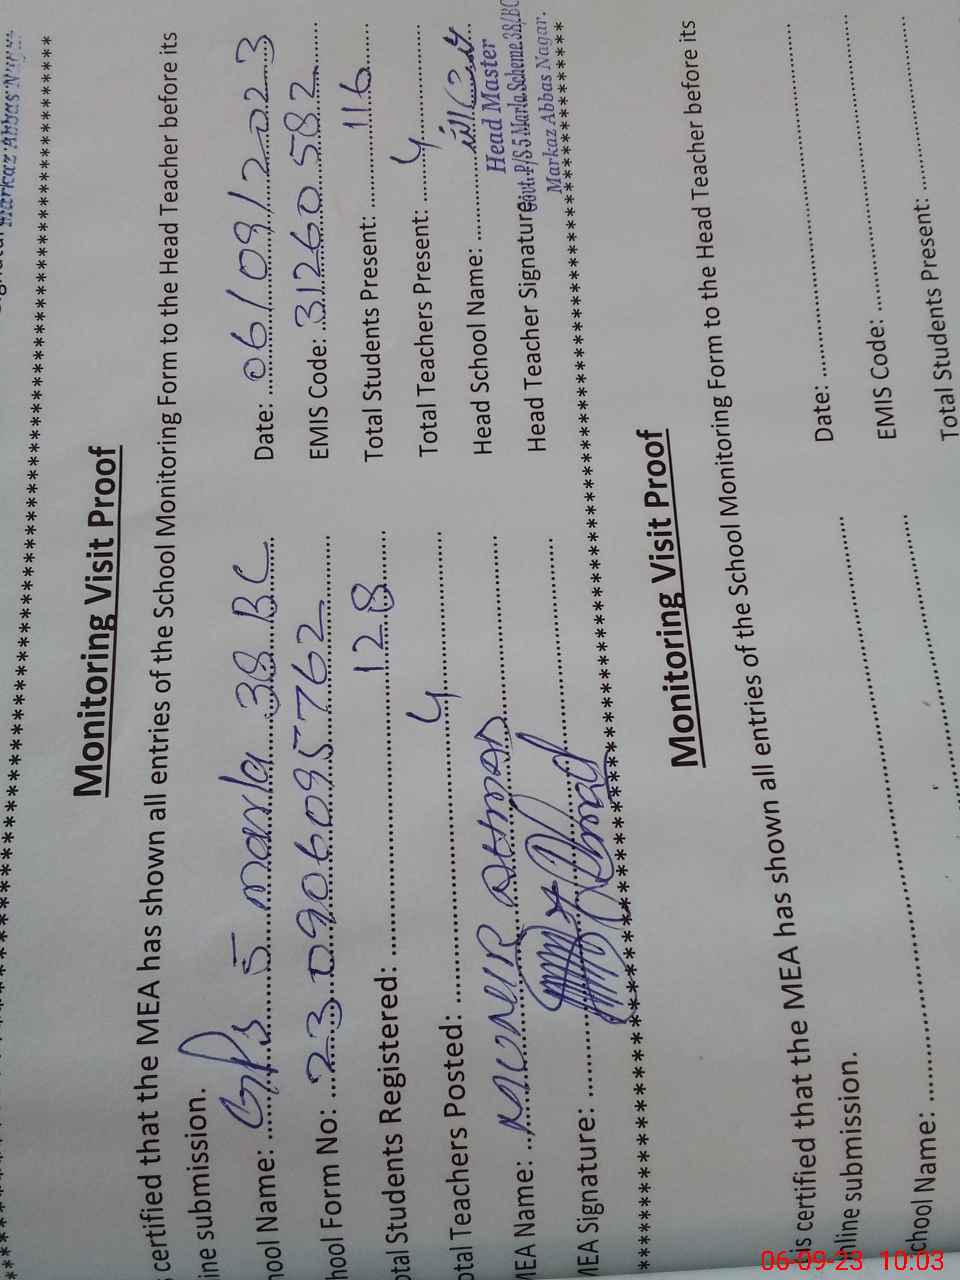 Markaz Abbas Nagar
Monitoring Visit Proof
certified that the MEA has shown all entries of the School Monitoring Form to the Head Teacher before its
ine submission.
hool Name: GPS 5 marla 38 BC Date: 06/09/2023
hool Form No: 23090609 5762 EMIS Code: 31260582
otal Students Registered: 128 Total Students Present: 116
otal Teachers Posted: 4 Total Teachers Present: 4
MEA Name: MUNEIR AHMAD Head School Name:
Head Master
MEA Signature: Head Teacher Signature
Govt. P/S 5 Marla Scheme 38/BC
Markaz Abbas Nagar.
Monitoring Visit Proof
is certified that the MEA has shown all entries of the School Monitoring Form to the Head Teacher before its
nline submission.
chool Name: Date:
EMIS Code:
Total Students Present:
06-09-23 10:03